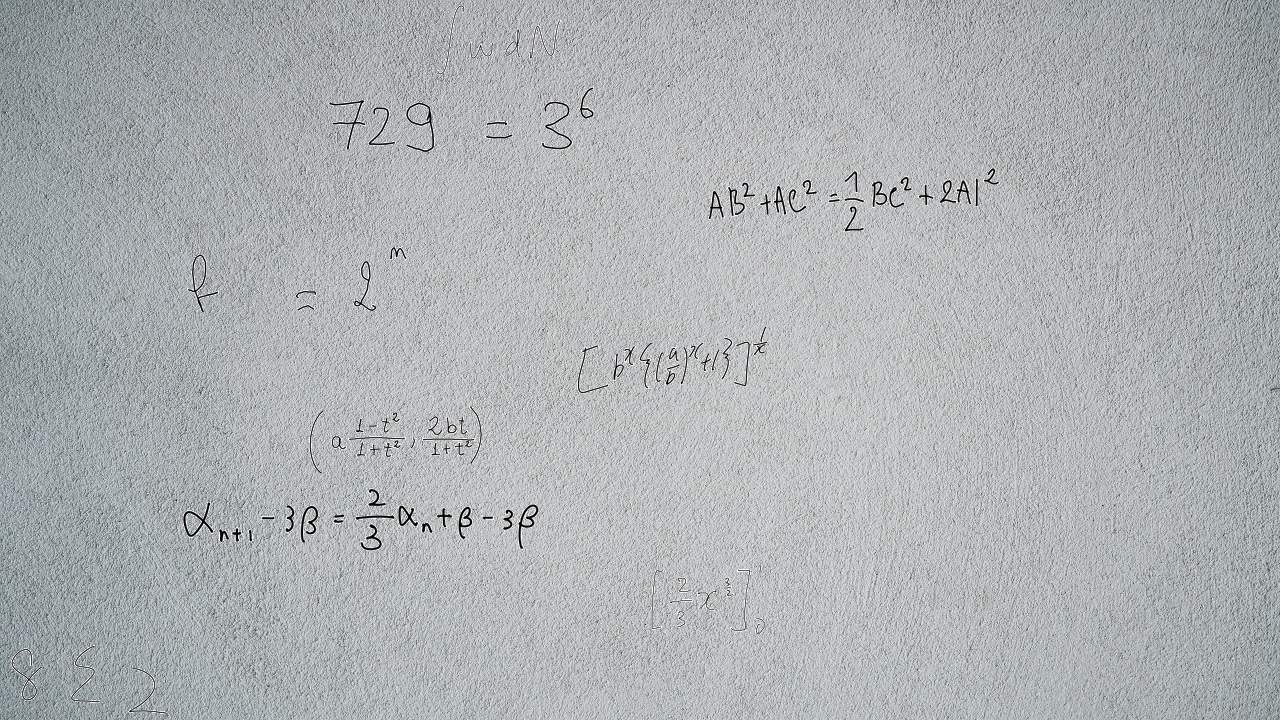 ∫ w d N
729 = 3^6
AB^2 + AC^2 = \frac{1}{2} BC^2 + 2AI^2
k = 2^n
[b^x{(\frac{a}{b})^x+1}]^{\frac{1}{x}}
(a\frac{1-t^2}{1+t^2}, \frac{2bt}{1+t^2})
α_{n+1} - 3β = \frac{2}{3}α_n + β - 3β
[\frac{2}{3}x^{\frac{3}{2}}]_0^1
8 Σ 2